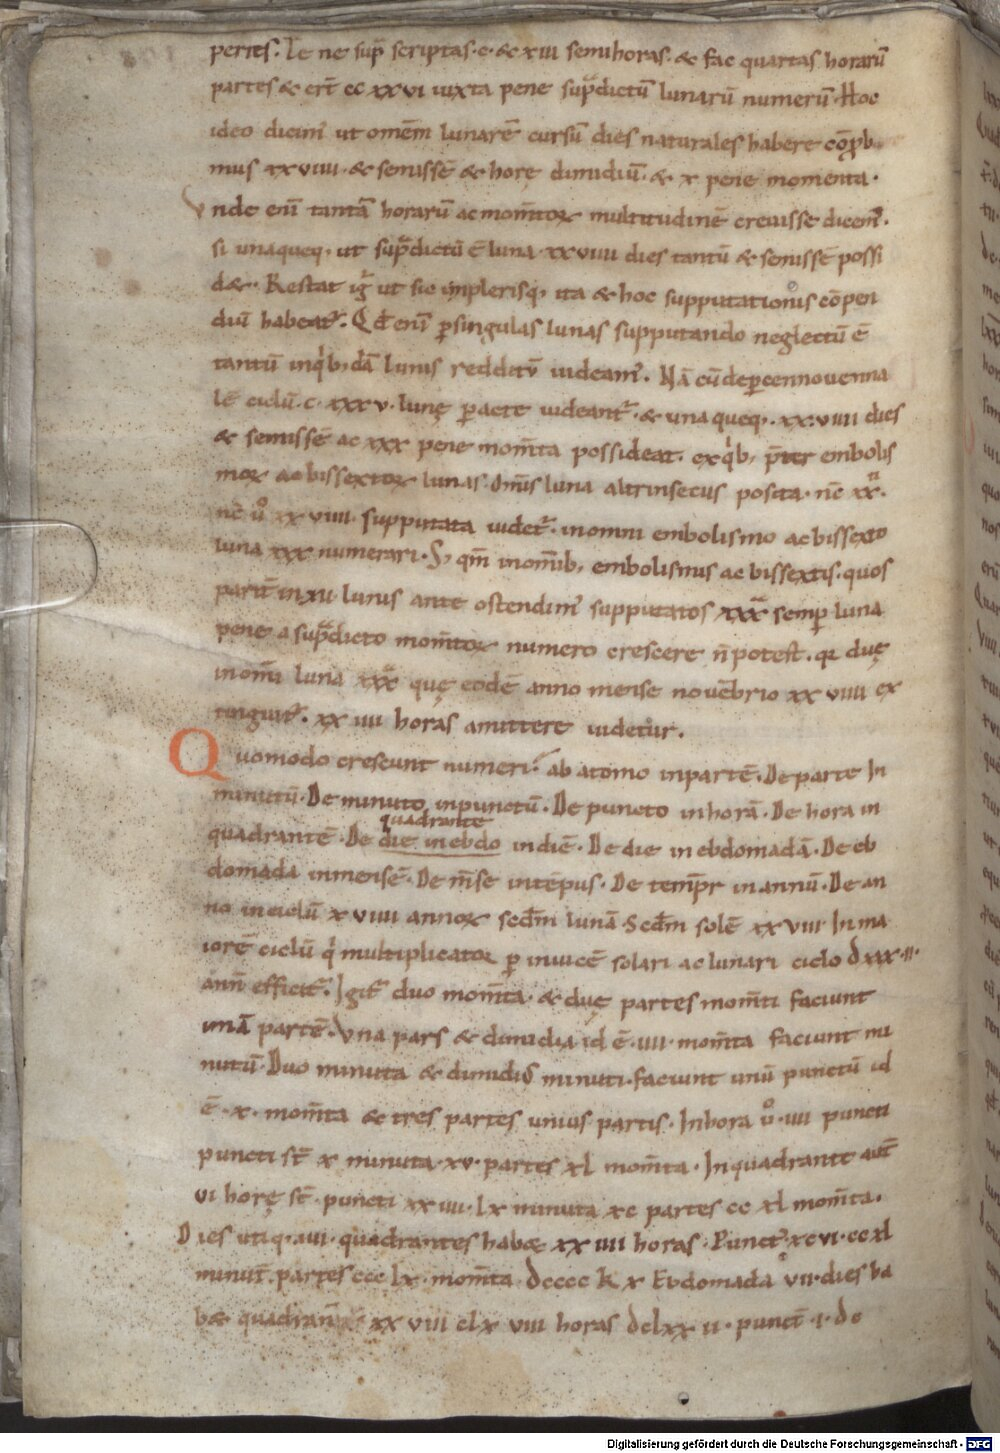 perites. Ie ne sup̄ scriptas .c. & xiii semihoras. & fac quartas horarū
partes & erт̄ cc xxvi iuxta pene sup̄dictū lunarū numerū. Hoc
ideo dicim̄ ut omēm lunarē cursū dies naturales habere cōprob
mus xxviiii. & semissē & horę dimidiū. & x pene momenta.
Vnde enī tantā horarū ac mom̄toꝝ multitudinē creuisse dicem̄.
si unaqueq, ut sup̄dictū ē luna xxviiii dies tantū & semissē possi
d&. Restat ig̅ ut sic implerisq, ita & hoc supputationis cōpen
diū habeat᷑. Qd̄ enī ꝑsingulas lunas supputando neglectū ē
tantū inqͥb, dā lunis redditū uideam̄. Nā cū de ꝑcennouenna
lē ciclū .c. xxxv. lunę ꝑacte uideant᷑. & una queq, . xxviiii dies
& semissē ac xxx pene mom̄ta possideat. exqͥb, p̄ter embolis
moꝝ ac bissextoꝝ lunas. om̄is luna altrinsecus posita. nē xx.ͣ
nē uͦ xxviiii. supputata uidet᷑. in omni embolismo ac bissexto
luna xxx numerari. S, qm̄ in om̄ib, embolismis ac bissextis. quos
parit̄ in xii lunis ante ostendim̄ supputatos xxxͣ semꝑ luna
pene a sup̄dicto mom̄toꝝ numero crescere n̄ potest. qꝛ duę
in om̄i luna xxxͣ quę eodē anno mense nouēbrio xxviiii ex
tinguit᷑. xx iiii horas amittere uidetur.
Quomodo crescunt numeri. ab atomo in partē. De parte In
minutū. De minuto in punctū. De puncto in horā. De hora in
quadrante
quadrantē. De die in ebdo in diē. De die in ebdomadā. De eb
domada in mensē. De m̄se in tēpus. De temp̄r in annū. De an
no in ciclū xviiii annoꝝ secd̄m lunā. Secd̄m solē xxviii In ma
iorē ciclū qͥ multiplicatoꝝ ꝑ inuicē solari ac lunari ciclo dxxx.ii.
ann̄ efficit᷑. Igit᷑ duo mom̄ta. & duę partes mom̄ti faciunt
unā partē. Vna pars & dimidia id ē. iiii. mom̄ta faciunt mi
nutū. Duo minuta & dimidiū minuti. faciunt unū punctū id
ē. x. mom̄ta & tres partes unius partis. In hora uͦ. iiii puncti
puncti st̄ x minuta. xv. partes xl mom̄ta. In quadrante aut̄
vi horę st̄. puncti xxiiii. lx minuta xc partes cc xl mom̄ta.
Dies utiq. iiii. quadrantes hab& xxiiii horas. Punct̄. xcvi. cc xl
minut̄. partes ccc lx. mom̄ta. dcccc k x Ebdomada vii. dies ha
b& quadran̄ xxviii clx viii horas dclxx ii. punct̄. i. de
Digitalisierung gefördert durch die Deutsche Forschungsgemeinschaft - DFG